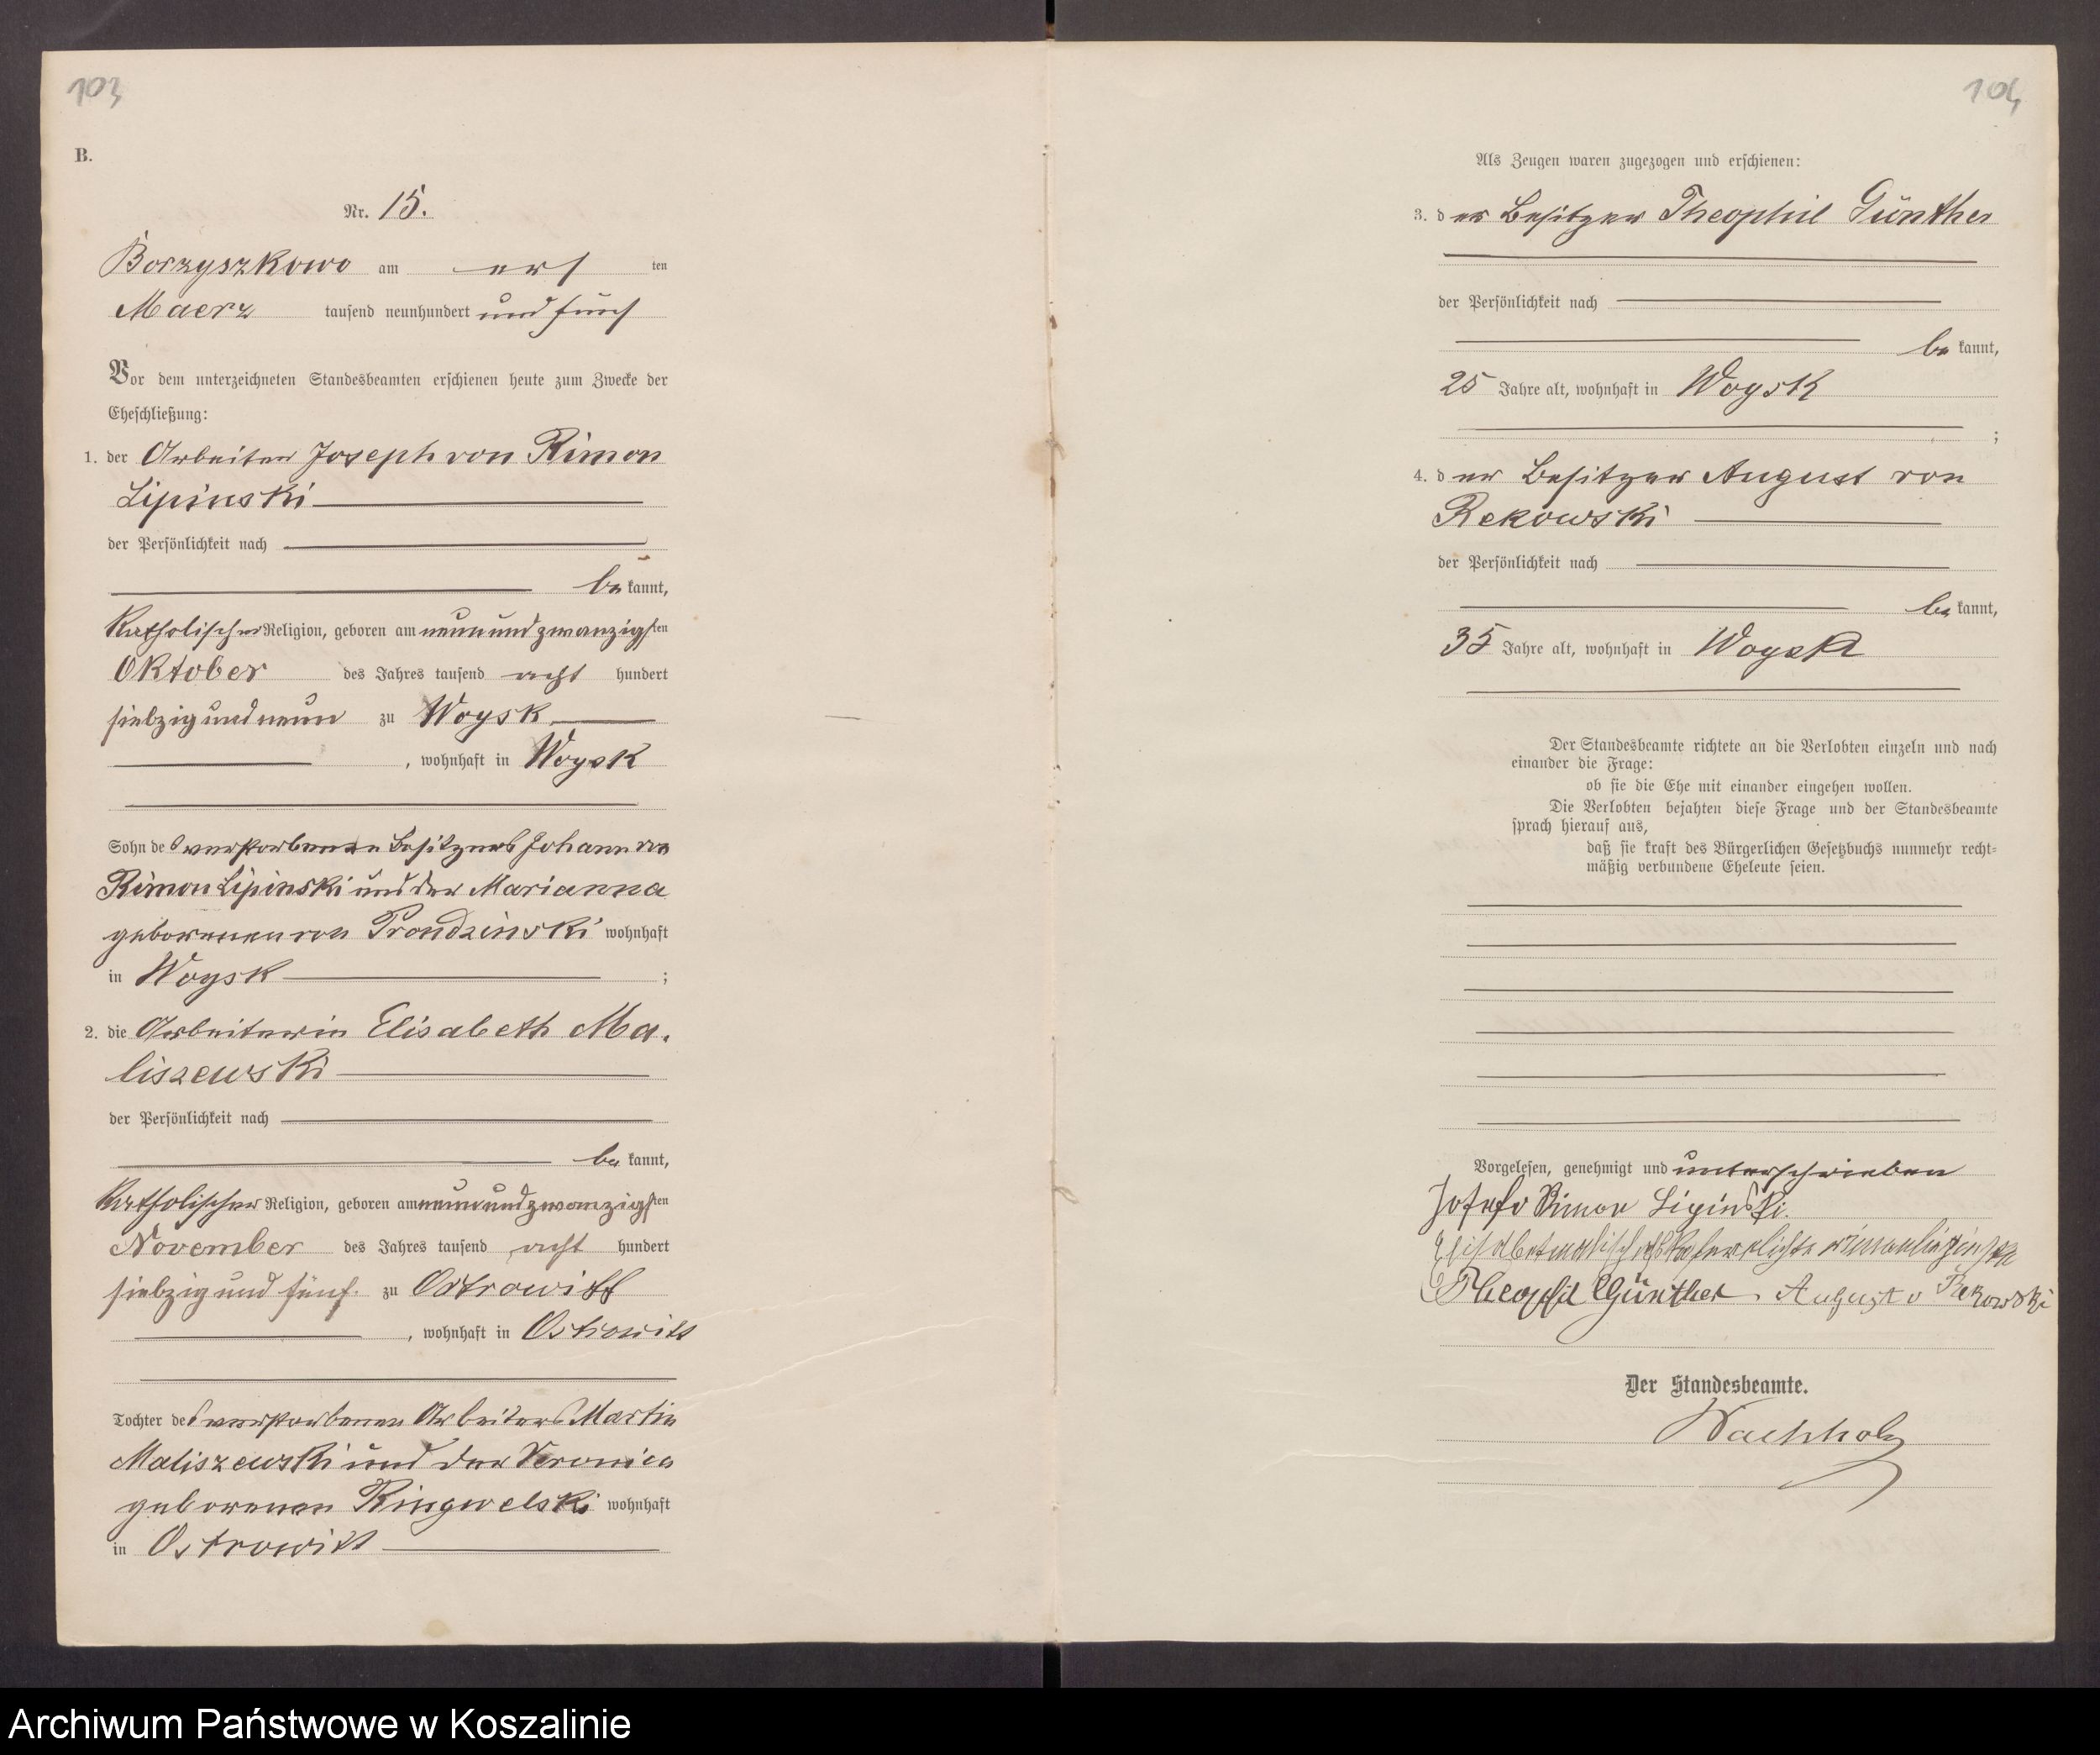 103
B.
Nr. 15.
Borzyszkowo am ers ten
Maerz tausend neunhundert und fünf
Vor dem unterzeichneten Standesbeamten erschienen heute zum Zwecke der
Eheschließung:
1. der Arbeiter Joseph von Rimon
Lipinski
der Persönlichkeit nach
be kannt,
Katholischer Religion, geboren am neunundzwanzigsten
Oktober des Jahres tausend acht hundert
siebzig und neun zu Woysk
, wohnhaft in Woysk
Sohn des verstorbenen Besitzers Johann von
Rimon Lipinski und der Marianna
geborenen von Prondzinski wohnhaft
in Woysk ;
2. die Arbeiterin Elisabeth Ma-
liszewski
der Persönlichkeit nach
be kannt,
Katholischer Religion, geboren am neunundzwanzigsten
November des Jahres tausend acht hundert
siebzig und fünf zu Ostrowitt
, wohnhaft in Ostrowitt
Tochter des verstorbenen Arbeiters Martin
Maliszewski und der Veronica
geborenen Ringwelski wohnhaft
in Ostrowitt
104
Als Zeugen waren zugezogen und erschienen:
3. der Besitzer Theophil Günther
der Persönlichkeit nach
be kannt,
25 Jahre alt, wohnhaft in Woysk
;
4. der Besitzer August von
Rekowski
der Persönlichkeit nach
be kannt,
35 Jahre alt, wohnhaft in Woysk
Der Standesbeamte richtete an die Verlobten einzeln und nach
einander die Frage:
ob sie die Ehe mit einander eingehen wollen.
Die Verlobten bejahten diese Frage und der Standesbeamte
sprach hierauf aus,
daß sie kraft des Bürgerlichen Gesetzbuchs nunmehr recht-
mäßig verbundene Eheleute seien.
Vorgelesen, genehmigt und unterschrieben
Josefv Rimon Lipinski.
Theophil Günther August v Rekowski
Der Standesbeamte.
Wachholz
Archiwum Państwowe w Koszalinie